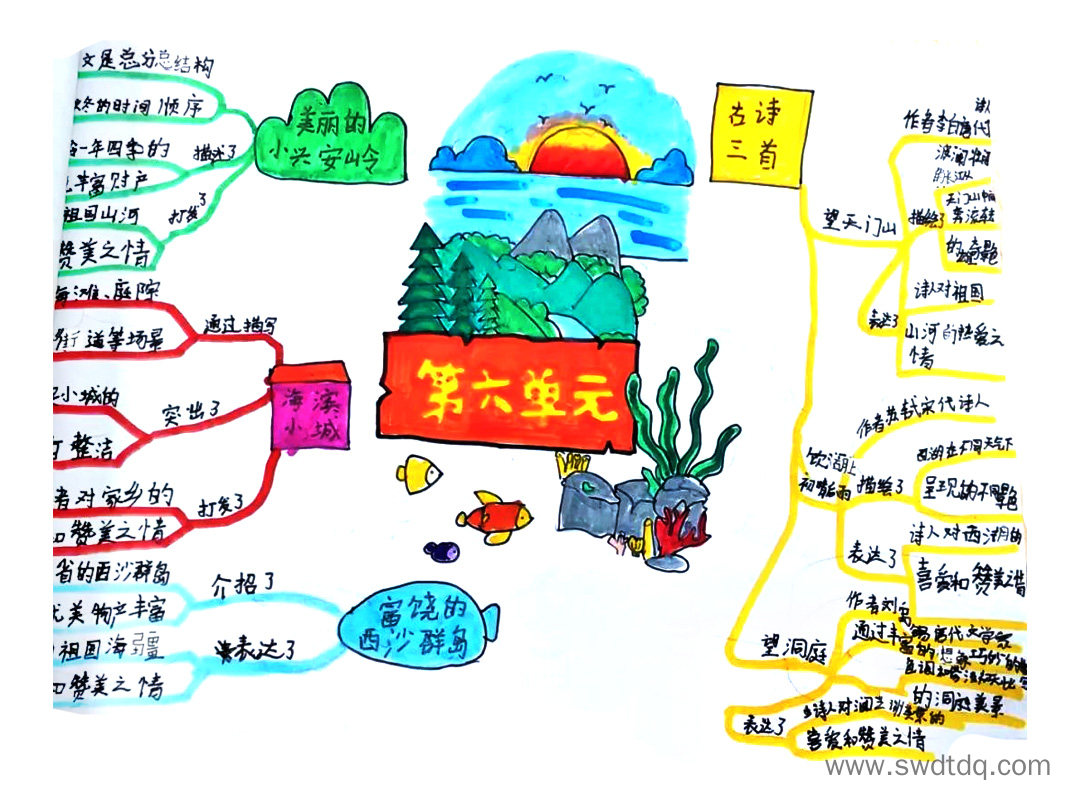 文是总分总结构
冬的时间顺序
一年四季的
丰富财产
描述了
祖国山河
打发了
赞美之情
美丽的
小兴安岭
海滩、庭院
街道等场景
通过描写
小城的
整洁
突出了
者对家乡的
和赞美之情
打发了
海滨
小城
省的西沙群岛
优美物产丰富
介绍了
祖国海疆
和赞美之情
表达了
富饶的
西沙群岛
第六单元
古诗
三首
望天门山
诗人
作者李白唐代
描绘了
的雄奇
表达了
诗人对祖国
山河的热爱之
情
饮湖上
初晴后雨
作者苏轼宋代诗人
描绘了
西湖在不同天气下
呈现的不同
表达了
诗人对西湖的
喜爱和赞美之
望洞庭
作者刘禹
通过丰富的想象
的洞庭美景
表达了
喜爱和赞美之情
www.swdtdq.com